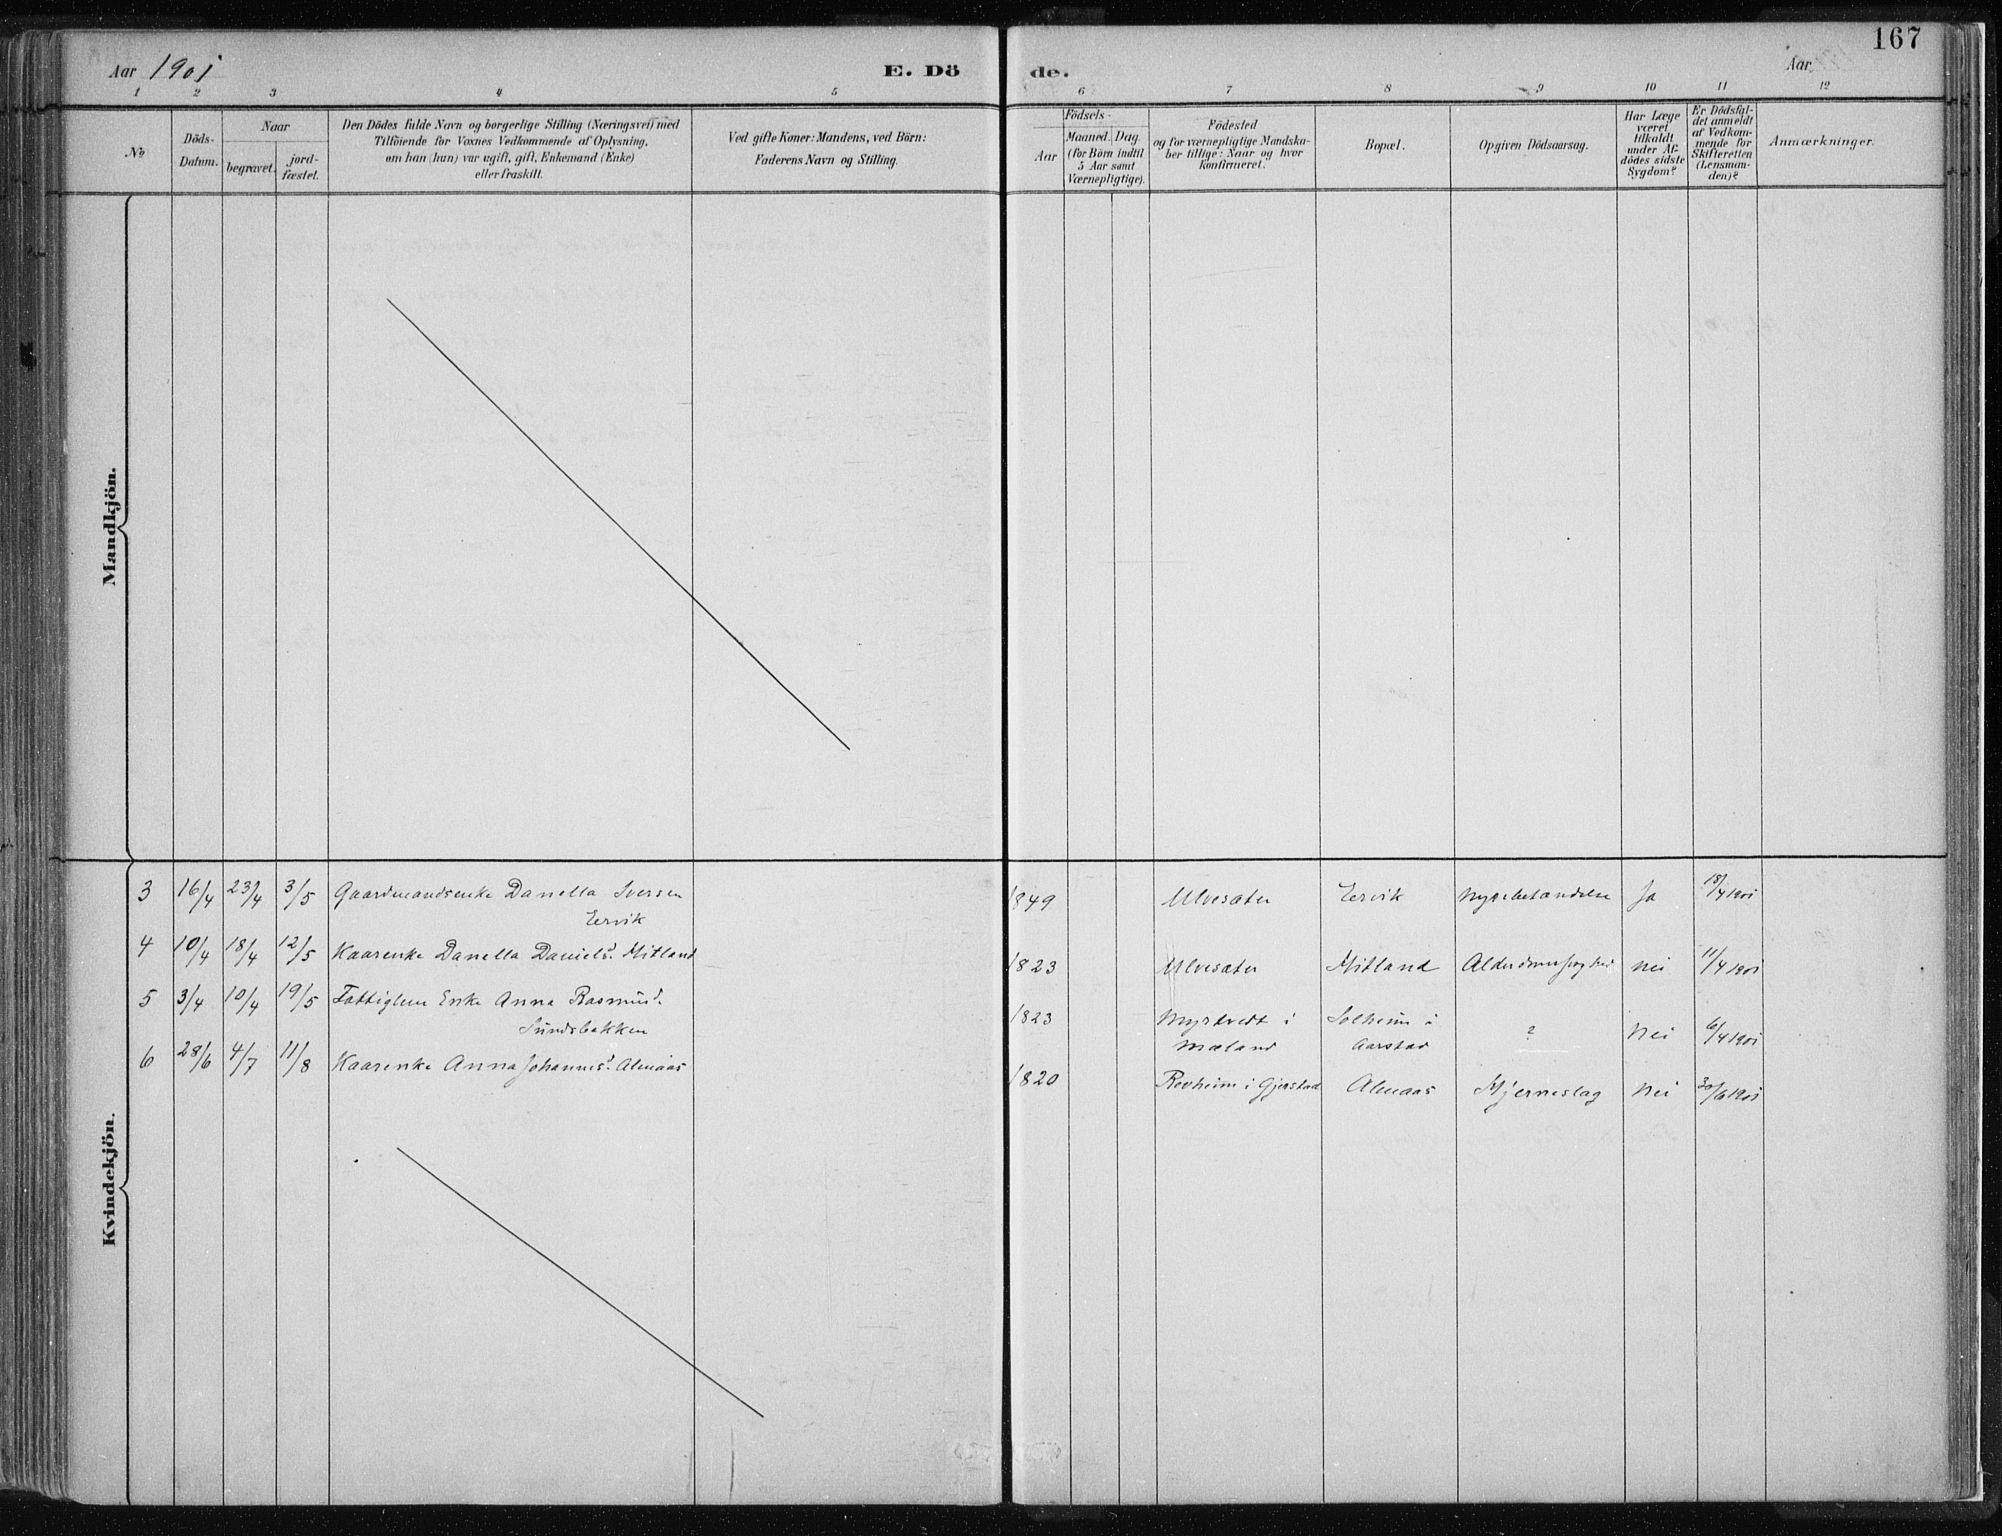 167
Aar 1901 E. Dö de. Aar
1 2 3 4 5 6 7 8 9 10 11 12
No
Döds-
Datum.
Naar
begravet.
jord-
fæstet.
Den Dödes fulde Navn og borgerlige Stilling (Næringsvei) med
Tilföiende for Voxnes Vedkommende af Oplysning,
om han (hun) var ugift, gift, Enkemand (Enke)
eller fraskilt.
Ved gifte Koner: Mandens, ved Börn:
Faderens Navn og Stilling.
Aar
Födsels-
Maaned. Dag.
(for Börn indtil
5 Aar samt
Værnepligtige).
Födested
og for værnepligtige Mandska-
ber tillige: Naar og hvor
konfirmeret.
Bopæl.
Opgiven Dödsaarsag.
Har Læge
været
tilkaldt
under Af-
dödes sidste
Sygdom?
Er Dödsfal-
det anmeldt
af Vedkom-
mende for
Skifteretten
(Lensman-
den)?
Anmærkninger.
Mandkjön.
Kvindekjön.
3 16/4 23/4 3/5 Gaardmandsenke Danella Iversen 1849 Ulvesæter Eervik Nyrebetændelse Ja 18/4 1901
Eervik
4 10/4 18/4 12/5 Kaarenke Danella Daniels. Mitland 1823 Ulvesæter Mitland nei 11/4 1901
5 3/4 10/4 19/5 Fattiglem Enke Anna Rasmusd. 1823 Myrtvedt i Solheim i ? Nei 6/4 1901
Sundsbakken Mæland Aarstad
6 28/6 4/7 11/8 Kaarenke Anna Johannesd. Almaas 1820 Revheim i Gjerstad Almaas Hjerneslag Nei 30/6 1901